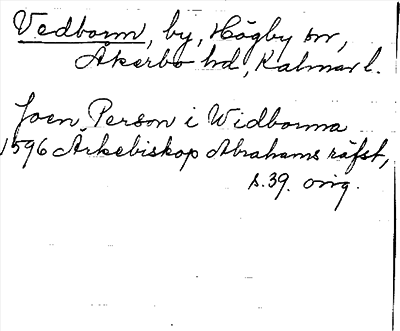 Vedborm, by, Högby sn,
Åkerbo hd, Kalmar l.
Joen Person i Widborma
1596 Ärkebiskop Abrahams räfst,
s. 39. orig.